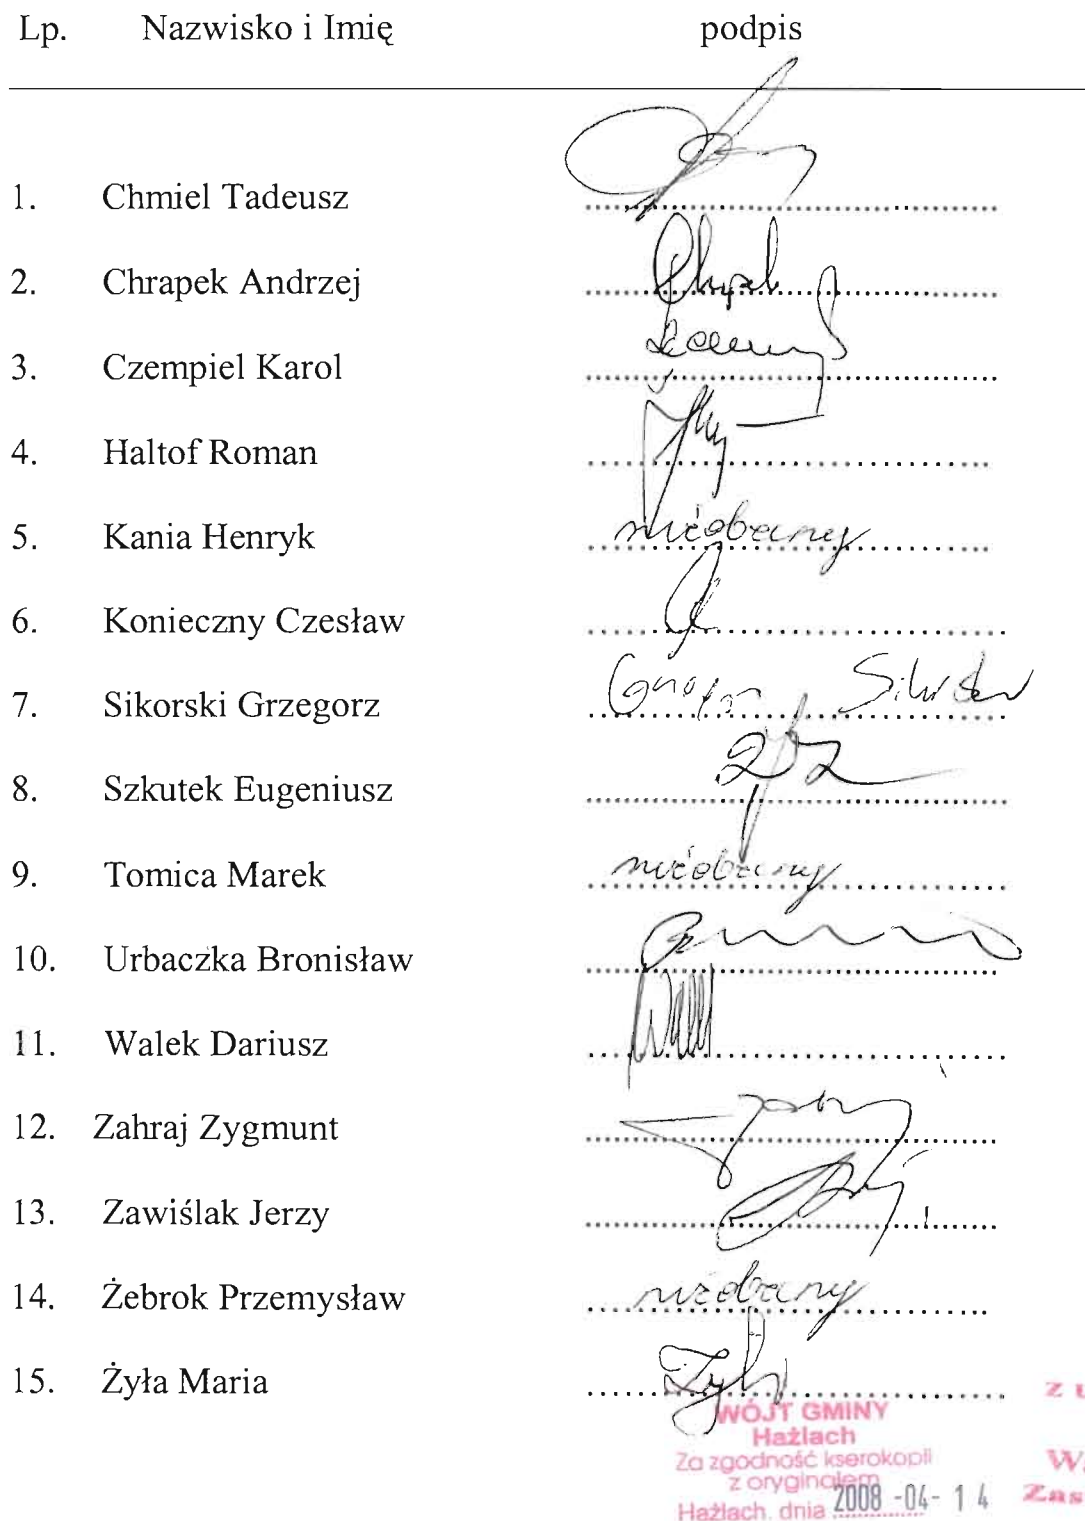 Lp. Nazwisko i Imię podpis
1. Chmiel Tadeusz
2. Chrapek Andrzej
3. Czempiel Karol
4. Haltof Roman
5. Kania Henryk nieobecny
6. Konieczny Czesław
7. Sikorski Grzegorz
8. Szkutek Eugeniusz
9. Tomica Marek nieobecny
10. Urbaczka Bronisław
11. Walek Dariusz
12. Zahraj Zygmunt
13. Zawiślak Jerzy
14. Żebrok Przemysław nieobecny
15. Żyła Maria
WÓJT GMINY
Hażlach
Za zgodność kserokopii
z oryginałem
Hażlach, dnia 2008 -04- 1 4